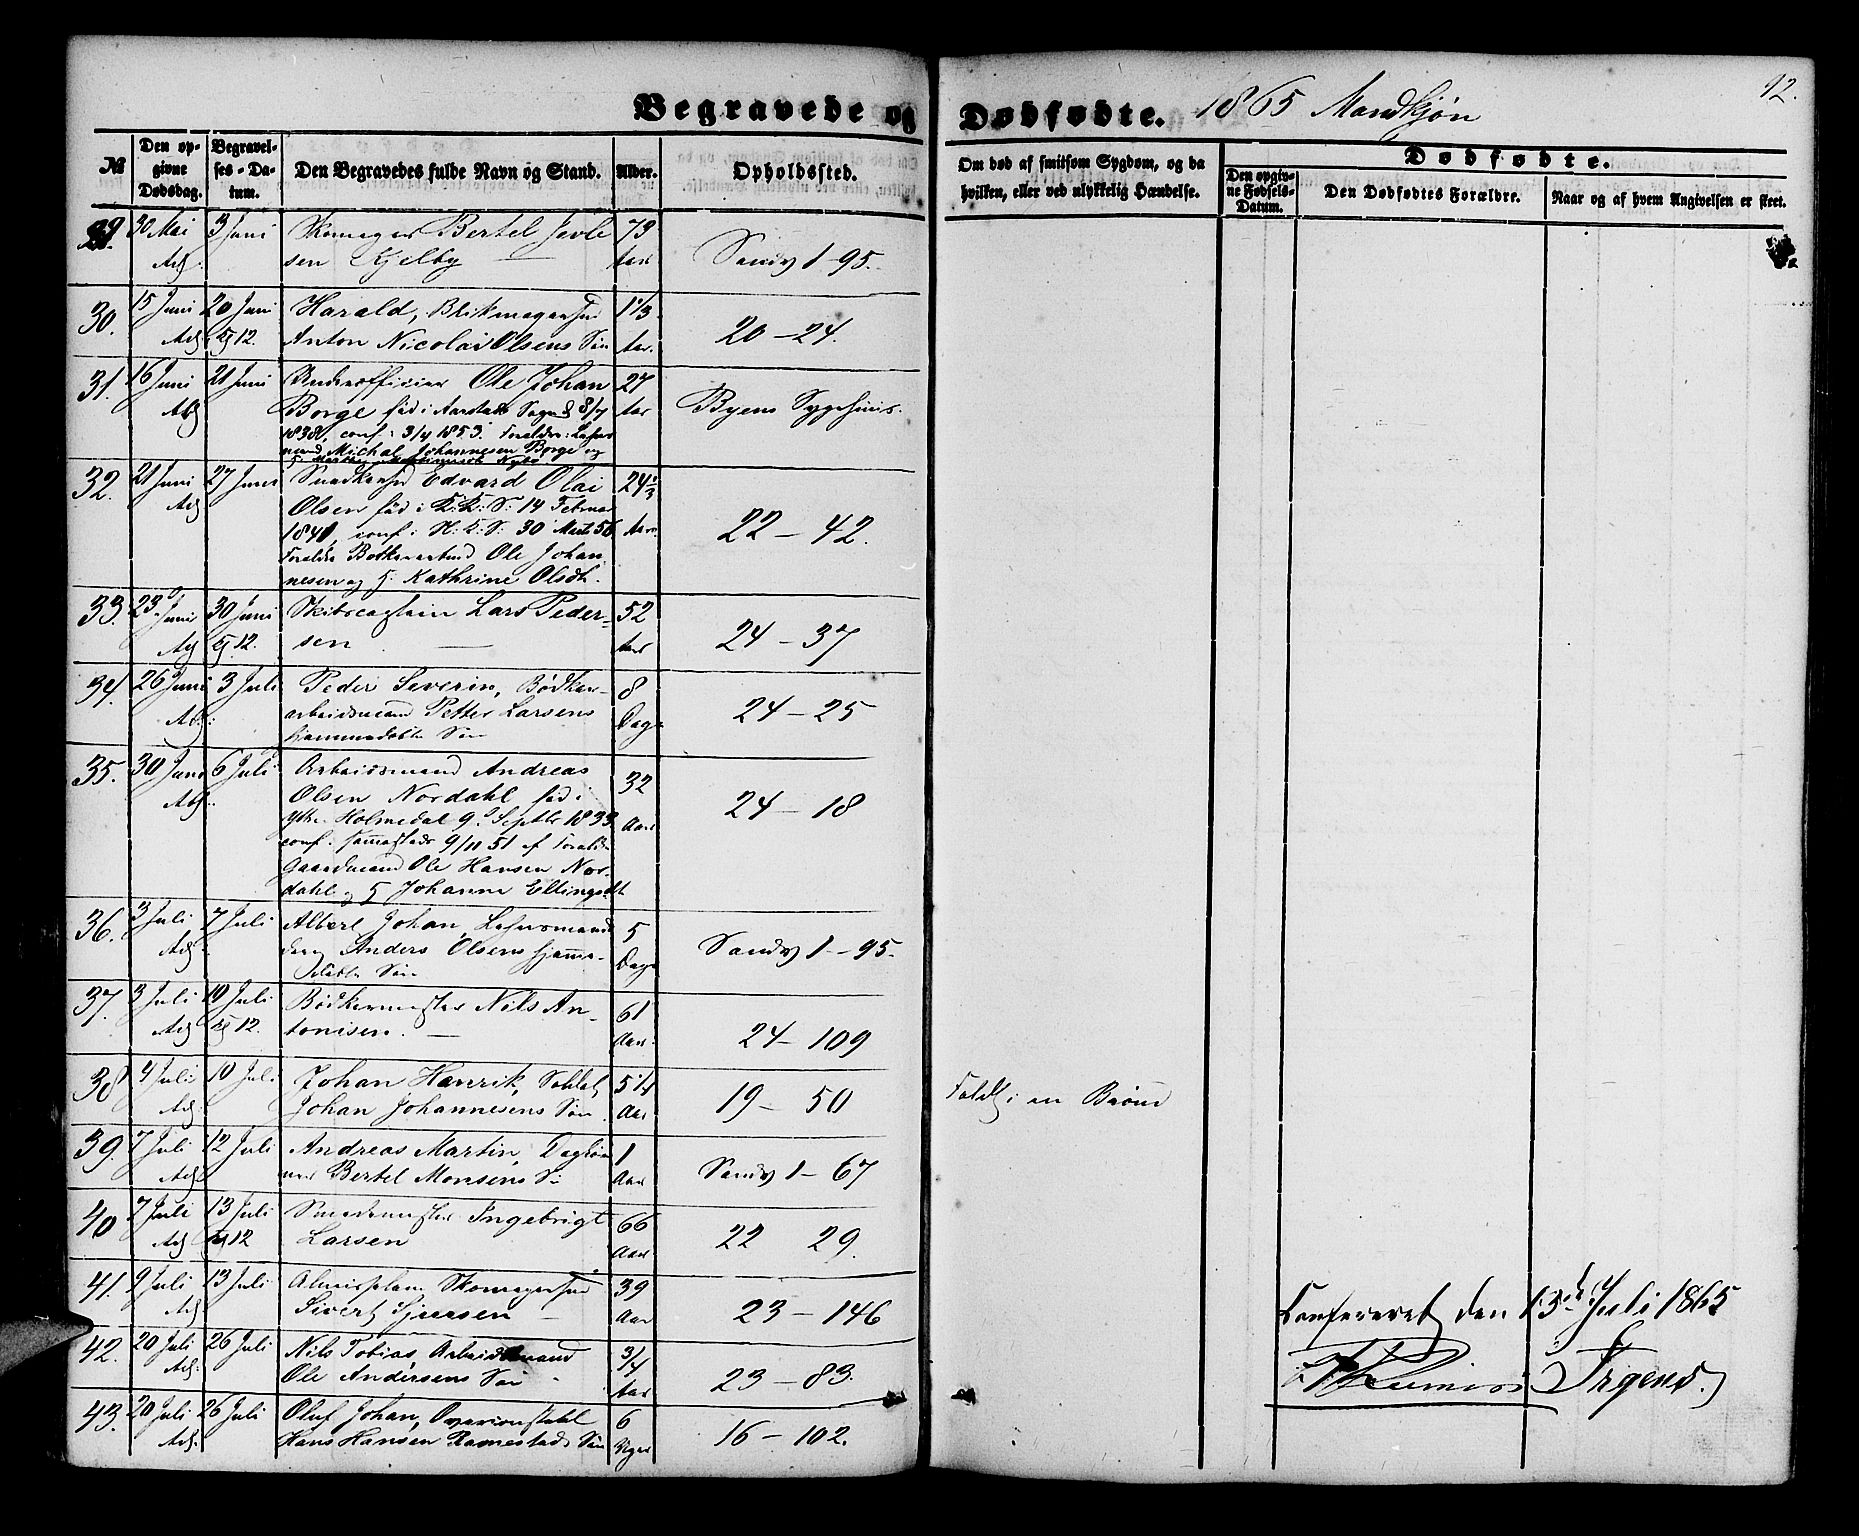 92.
Begravede og Dødfødte. 1865 Mandkjøn
№
Den opgivne Dødsdag.
Begravelses-Datum.
Den Begravedes fulde Navn og Stand.
Alder.
Opholdssted.
Om død af smitsom Sygdom, og da hvilken, eller ved ulykkelig Hændelse.
Dødfødte.
Den opgivne Fødsels-Datum.
Den Dødfødtes Forældre.
Naar og af hvem Angivelsen er skeet.
29. 30 Mai 3 Juni Skomager Bertel 73
sen Kjelby Aar Sandv 1-95.
30. 15 Juni 20 Juni Harald, 1 1/3
12. Anton Nicolai Olsens Søn Aar. 20-24.
31. 16 Juni 21 Juni Underofficier Ole Johan 27
Borge fød i Aarstad Sogn 8/7 Aar Byens Sygehuus.
1838, conf. 3/4 1853. Forældre:
mand Michal Johannesen Borge og
32. 21 Juni 27 Juni Edvard Olai 24 1/3
Olsen fød i K: K: S: 14 Februar
1841, conf. i N: K: S: 30 Marts 56 Aar 22-42.
Forældre Ole Johan
nesen og Kathrine Olsdt.
33. 23 Juni 30 Juni Skibscaptain Lars Peder- 52
12. sen Aar 24-37
34. 26 Juni 3 Juli Peder Severin, Bødker- 8
arbeidsmand Petter Larsens Dage 24-25
hjemmedøbte Søn
35. 30 Juni 6 Juli Arbeidsmand Andreas 32
Olsen Nordahl fød i
Ytre Holmedal 9. Septbr 1833 Aar 24-18
conf. 9/11 51 af Forældre
Gaardmand Ole Hansen Nor-
dahl og Johanne Ellingsdt
36. 3 Juli 7 Juli Albert Johan, 5
Anders Olsens hjemme- Dage Sandv 1-95.
døbte Søn
37. 3 Juli 10 Juli Bødkermester Nils An- 61
12. tonisen. Aar 24-109
38 4 Juli 10 Juli Johan Henrik, Soldat 5 1/4
Johan Johannesens Søn. Aar 19-50 Faldt i en Brønd
39. 7 Juli 12 Juli Andreas Martin, Dagløn 1
ner Bertel Monsens Søn Aar Sandv 1-67
40 7 Juli 13 Juli Smedemester Ingebrigt 66
12 Larsen Aar. 22 29.
41. 9 Juli 13 Juli 39
Sivert Sjursen Aar 23-146
42. 20 Juli 26 Juli Nils Tobias, Arbeidsmand 3/4
Ole Andersens Søn Aar 23-83.
43. 20 Juli 26 Juli Oluf Johan, 6
Hans Hansen Ramestads Søn Uger 16-102.
Confereret den 15d Juli 1865
Irgens.